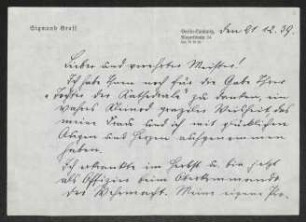 Sigmund Graff
Berlin-Lankwitz, den 21.12.39.
Lieber und verehrter Meister!
Ich habe Ihnen noch für die Gabe Ihrer
"Tochter der Kathedrale" zu danken, ein
wahres Kleinod graziler Weiblichkeit das
meine Frau und ich mit glücklichen
Augen und Herzen aufgenommen
haben.
Ich erkrankte im Herbst u. bin jetzt
als Offizier beim Oberkommando
der Wehrmacht. Meine eigene Pro-